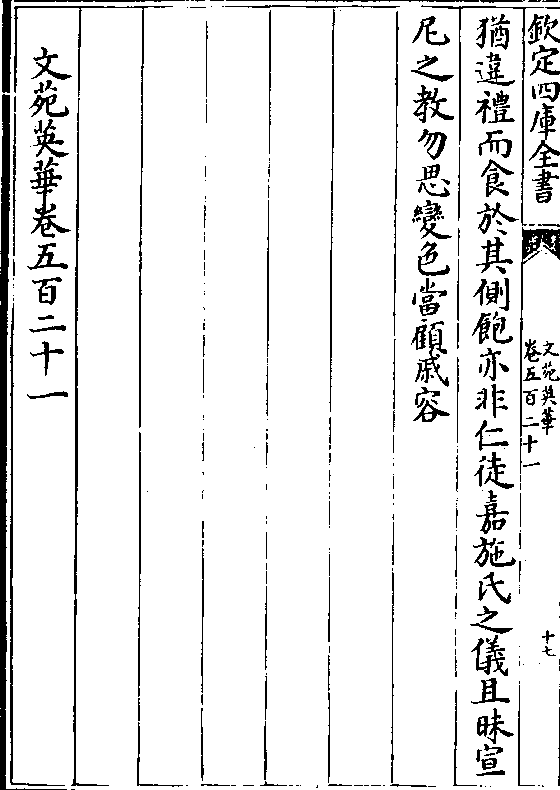 欽定四庫全書
文苑英華
卷五百二十一
十七
猶違禮而食於其側飽亦非仁徒嘉施氏之儀且昧宣
尼之教勿思變色當顧戚容
文苑英華卷五百二十一